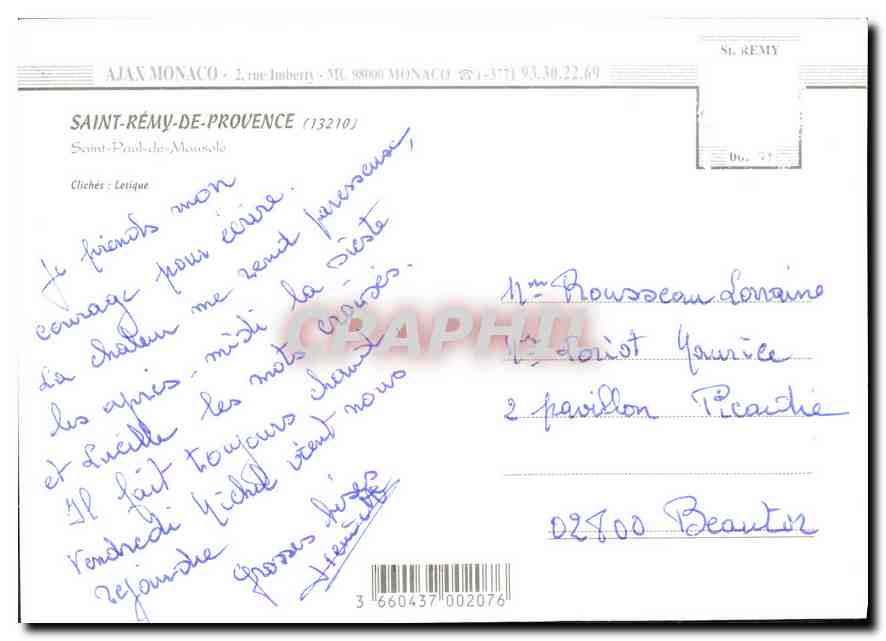 AJAX MONACO - 2, rue Imberty - MC 98000 MONACO ☎ (+377) 93.30.22.69
St. REMY
SAINT-RÉMY-DE-PROVENCE (13210)
Saint-Paul-de-Mausole
Clichés : Letique
Je prends mon
courage pour écrire.
La chaleur me rend paresseuse,
les après-midi la sieste
et Lucille les mots croisés.
Il fait toujours chaud
Vendredi Michel vient nous
rejoindre
Grosses bises
Mme Rousseau Lorraine
Mr Loriot Maurice
2 pavillon Picardie
02800 Beautor
CPARAPHIL
3 660437 002076